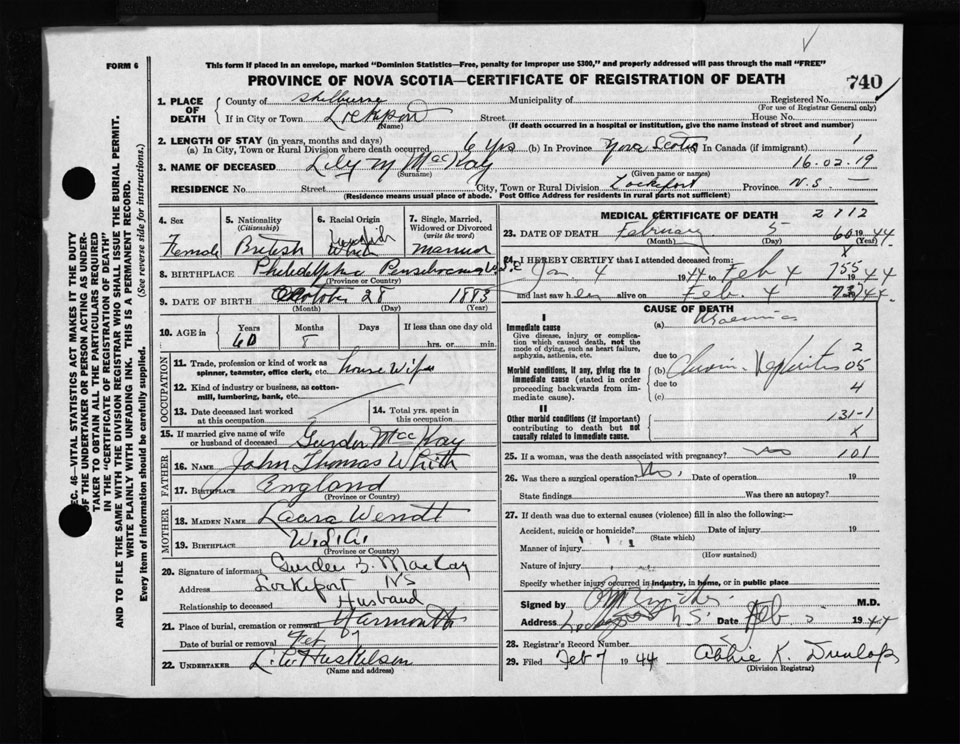 FORM 6
This form if placed in an envelope, marked "Dominion Statistics—Free, penalty for improper use $300," and properly addressed will pass through the mail "FREE"
PROVINCE OF NOVA SCOTIA—CERTIFICATE OF REGISTRATION OF DEATH
740
1. PLACE OF DEATH
County of Shelburne Municipality of Registered No.
(For use of Registrar General only)
If in City or Town Lockeport Street House No.
(Name) (If death occurred in a hospital or institution, give the name instead of street and number)
2. LENGTH OF STAY (in years, months and days)
(a) In City, Town or Rural Division where death occurred 6 yrs (b) In Province Nova Scotia In Canada (if immigrant) 1
3. NAME OF DECEASED Lily M MacKay 16.02.19
(Surname) (Given name or names)
RESIDENCE No. Street City, Town or Rural Division Lockeport Province N.S. —
(Residence means usual place of abode. Post Office Address for residents in rural parts not sufficient)
4. Sex
Female
5. Nationality
(Citizenship)
British
6. Racial Origin
White
7. Single, Married, Widowed or Divorced
(Write the word)
married
8. BIRTHPLACE Philadelphia
(Province or Country)
9. DATE OF BIRTH October 28 1883
(Month) (Day) (Year)
10. AGE in Years Months Days If less than one day
60 hrs. or min.
OCCUPATION
11. Trade, profession or kind of work as
spinner, teamster, office clerk, etc. House Wife
12. Kind of industry or business, as cotton-
mill, lumbering, bank, etc.
13. Date deceased last worked
at this occupation
14. Total yrs. spent in
this occupation
15. If married give name of wife
or husband of deceased Gurden MacKay
FATHER
16. NAME John Thomas
17. BIRTHPLACE England
(Province or Country)
MOTHER
18. MAIDEN NAME Laura Wendt
19. BIRTHPLACE
(Province or Country)
20. Signature of informant Gurden B. MacKay
Address Lockeport NS
Relationship to deceased Husband
21. Place of burial, cremation or removal Yarmouth
Date of burial or removal Feb 7
22. UNDERTAKER
(Name and address)
MEDICAL CERTIFICATE OF DEATH 2712
23. DATE OF DEATH February 5 60 1944
(Month) (Day) (Year)
X
24. I HEREBY CERTIFY that I attended deceased from
Jan. 4 1944 to Feb 4 755 1944
and last saw her alive on Feb. 4 1944.
CAUSE OF DEATH
I
Immediate cause
Give disease, injury or complica-
tion which caused death, not the
mode of dying, such as heart failure,
asphyxia, asthenia, etc.
(a) Uraemia
due to 2
Morbid conditions, if any, giving rise to
immediate cause (stated in order
proceeding backwards from im-
mediate cause).
(b) Chronic Nephritis 05
due to 4
(c)
II
Other morbid conditions (if important)
contributing to death but not
causally related to immediate cause.
131-1
X
25. If a woman, was the death associated with pregnancy? no 101
26. Was there a surgical operation? No. Date of operation 19
State findings Was there an autopsy?
27. If death was due to external causes (violence) fill in also the following:—
Accident, suicide or homicide? Date of injury 19
(State which)
Manner of injury
(How sustained)
Nature of injury
Specify whether injury occurred in industry, in home, or in public place
Signed by M.D.
Address Lockeport N.S. Date Feb. 5 1944
28. Registrar's Record Number
29. Filed Feb 7 1944 Abbie K. Dunlop
(Division Registrar)
SEC. 46—VITAL STATISTICS ACT MAKES IT THE DUTY
OF THE UNDERTAKER OR PERSON ACTING AS UNDER-
TAKER TO OBTAIN ALL THE PARTICULARS REQUIRED
IN THE "CERTIFICATE OF REGISTRATION OF DEATH"
AND TO FILE THE SAME WITH THE DIVISION REGISTRAR WHO SHALL ISSUE THE BURIAL PERMIT.
WRITE PLAINLY WITH UNFADING INK. THIS IS A PERMANENT RECORD.
Every item of information should be carefully supplied. (See reverse side for instructions.)